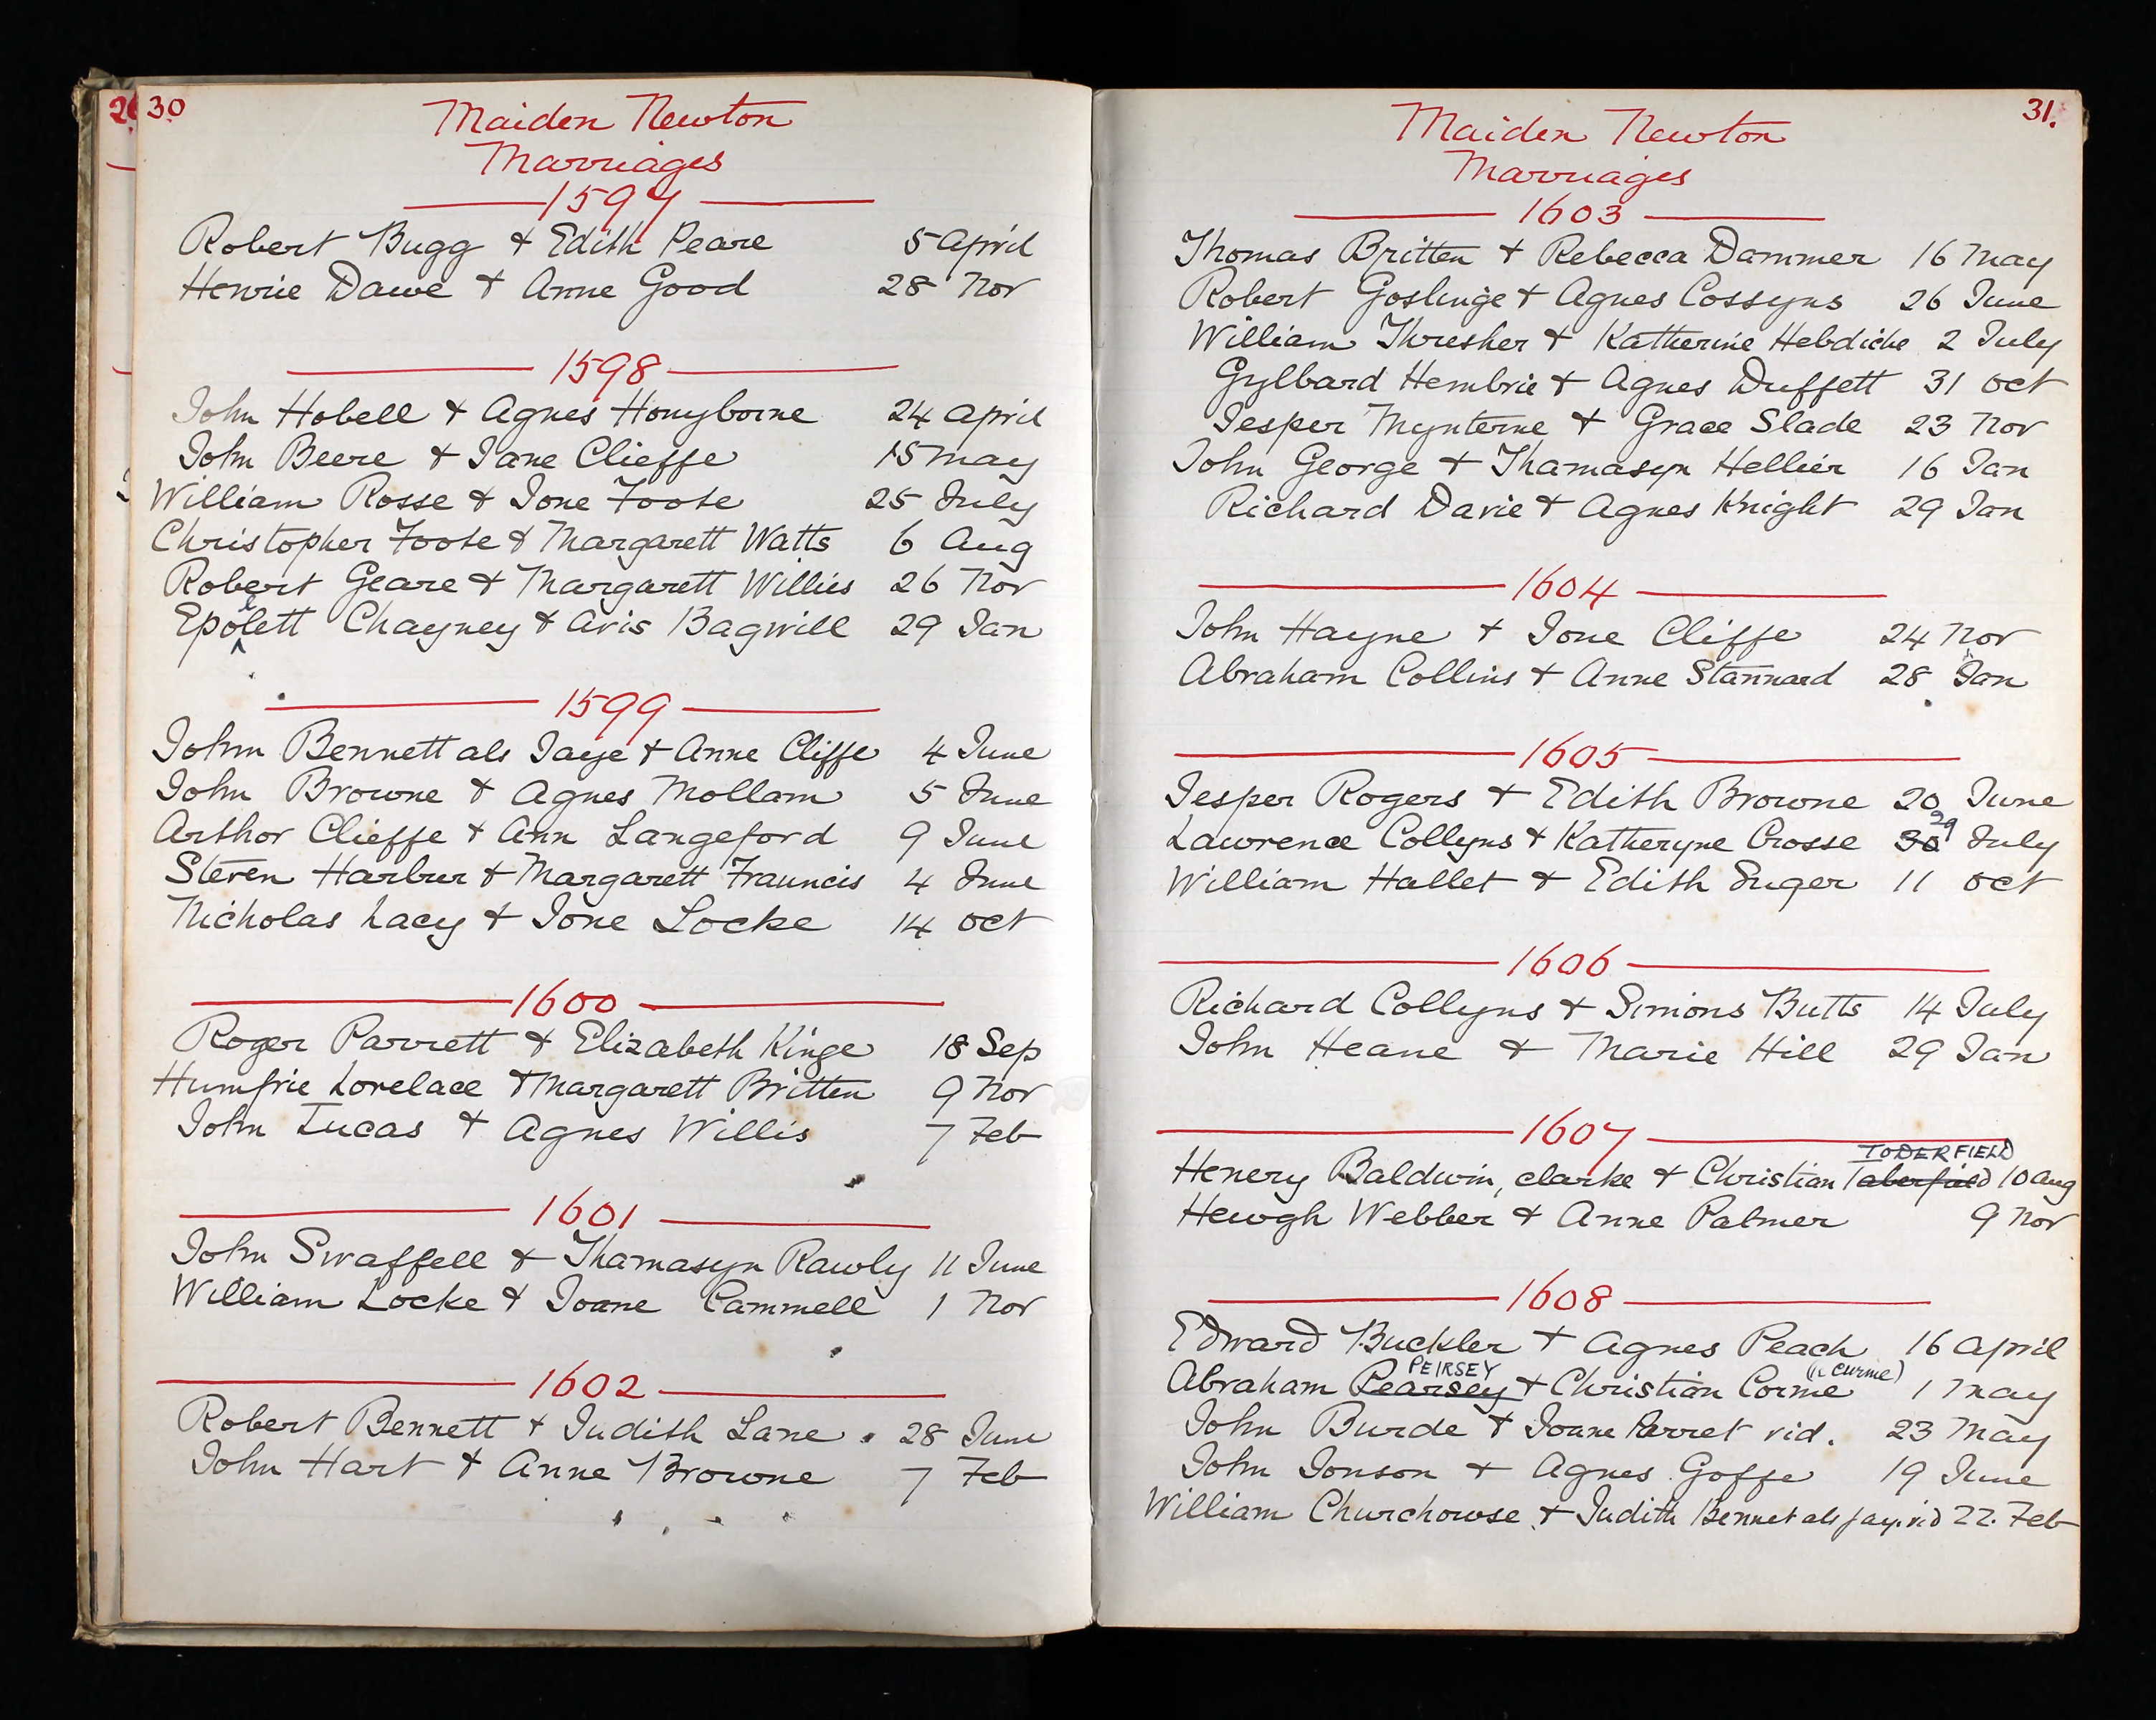 30
Maiden Newton
Marriages
1597
Robert Bugg & Edith Peare 5 April
Henrie Dawe & Anne Good 28 Nov
1598
John Hobell & Agnes Honyborne 24 April
John Beere & Jane Clieffe 15 May
William Rosse & Ione Foote 25 July
Christopher Foote & Margarett Watts 6 Aug
Robert Geare & Margarett Willies 26 Nov
Epolett Chayney & Avis Bagwill 29 Jan
1599
John Bennett als Jaye & Anne Cliffe 4 June
John Browne & Agnes Mollam 5 June
Arthor Clieffe & Ann Langeford 9 June
Steven Harbur & Margarett Frauncis 4 June
Nicholas Lacy & Ione Locke 14 Oct
1600
Roger Parrett & Elizabeth Kinge 18 Sep
Humfrie Lovelace & Margarett Britten 9 Nov
John Lucas & Agnes Willis 7 Feb
1601
John Swaffell & Thamasyn Rawly 11 June
William Locke & Joane Cammell 1 Nov
1602
Robert Bennett & Judith Lane 28 June
John Hart & Anne Browne 7 Feb
31.
Maiden Newton
Marriages
1603
Thomas Britten & Rebecca Dammer 16 May
Robert Goslinge & Agnes Cossyns 26 June
William Thresher & Katherine Hebdiche 2 July
Gylbard Hembrie & Agnes Duffett 31 Oct
Jesper Mynterne & Grace Slade 23 Nov
John George & Thamasyn Hellier 16 Jan
Richard Davie & Agnes Knight 29 Jan
1604
John Hayne & Ione Cliffe 24 Nov
Abraham Collins & Anne Stannard 28 Jan
1605
Jesper Rogers & Edith Browne 20 June
Lawrence Collyns & Katheryne Crosse 30 29 July
William Hallet & Edith Suger 11 Oct
1606
Richard Collyns & Simons Butts 14 July
John Heane & Marie Hill 29 Jan
1607
TODERFIELD
Henery Baldwin, clarke & Christian Taberfield 10 Aug
Hewgh Webber & Anne Palmer 9 Nov
1608
Edward Buckler & Agnes Peach 16 April
PEIRSEY (curme)
Abraham Pearsey & Christian Corme 1 May
John Burde & Joane Parret vid. 23 May
John Jonson & Agnes Goffe 19 June
William Churchowse & Judith Bennet als Jay. vid 22. Feb